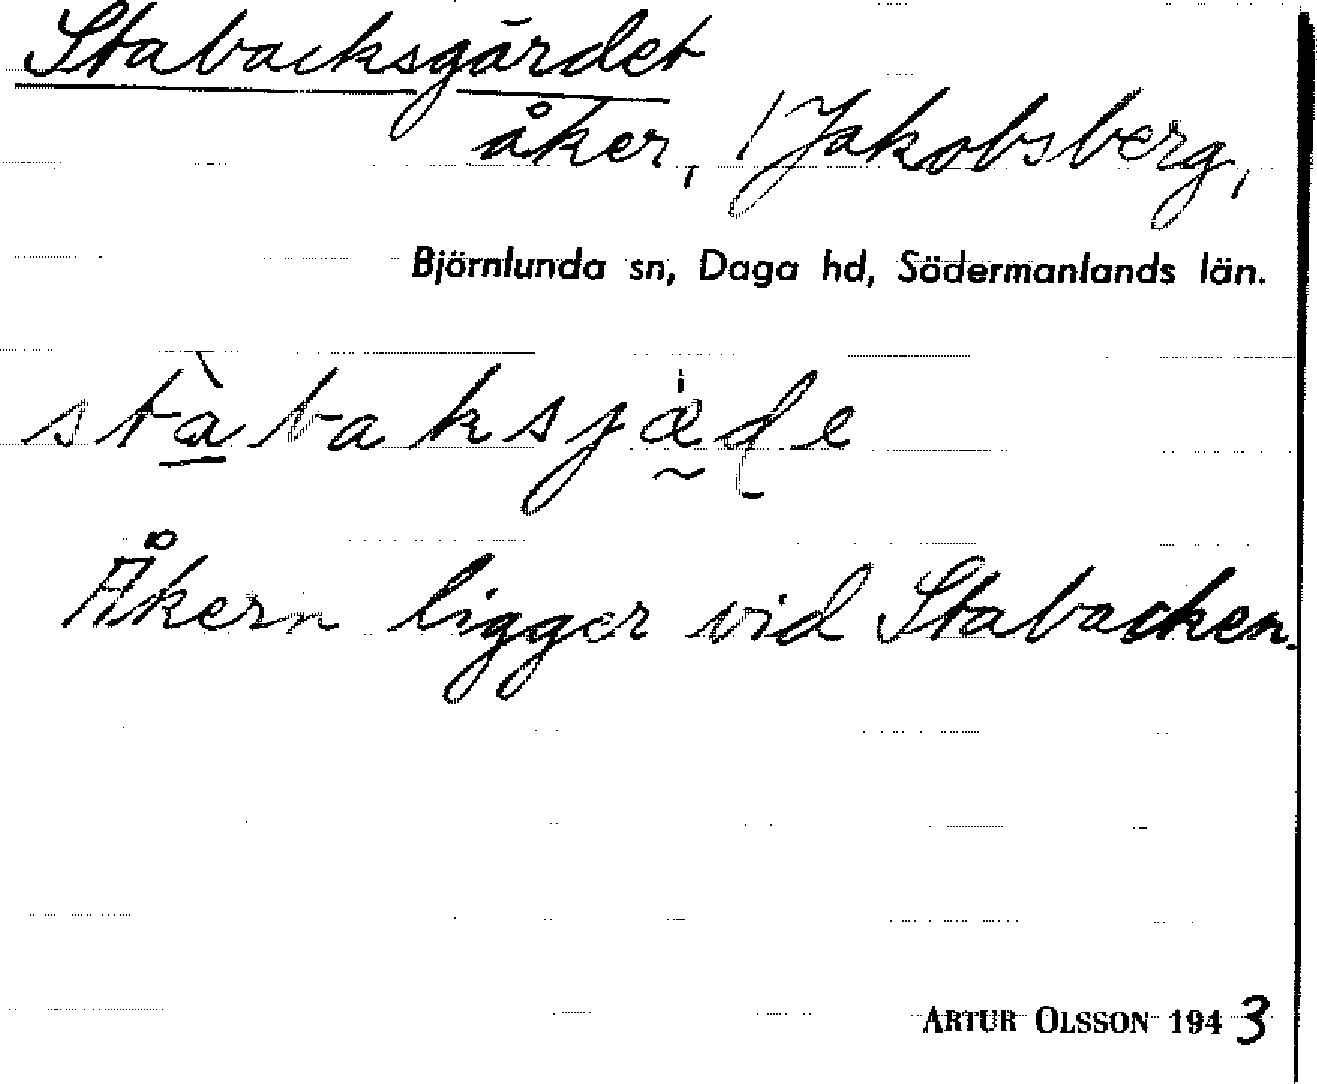 Stabacksgärdet
åker, Jakobsberg,
Björnlunda sn, Daga hd, Södermanlands län.
stàbaksjæde
Åkern ligger vid Stabacken.
ARTUR OLSSON 1943